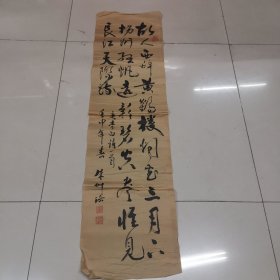 故人西辞黄鹤楼烟花三月下
扬州孤帆远影碧空尽惟见
长江天际流
李白诗一首
壬申年春